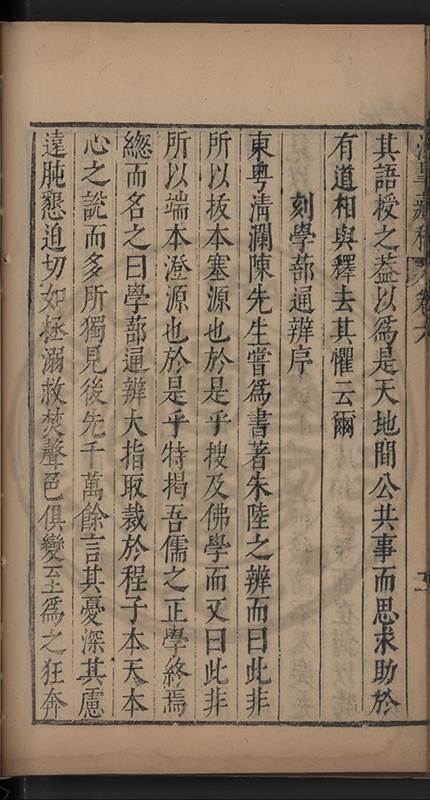 其語授之葢以爲是天地間公共事而思求助於
有道相與釋去其懼云爾
刻學蔀通辨序
東粤淸瀾陳先生嘗爲書著朱陸之辨而曰此非
所以抜本塞源也於是乎搜及佛學而又曰此非
所以端本澄源也於是乎特掲吾儒之正學終焉
總而名之曰學蔀通辨大指取裁於程子本天本
心之說而多所獨見後先千萬餘言其憂深其慮
遠肫懇迫切如拯溺救焚聲色俱變至爲之狂奔